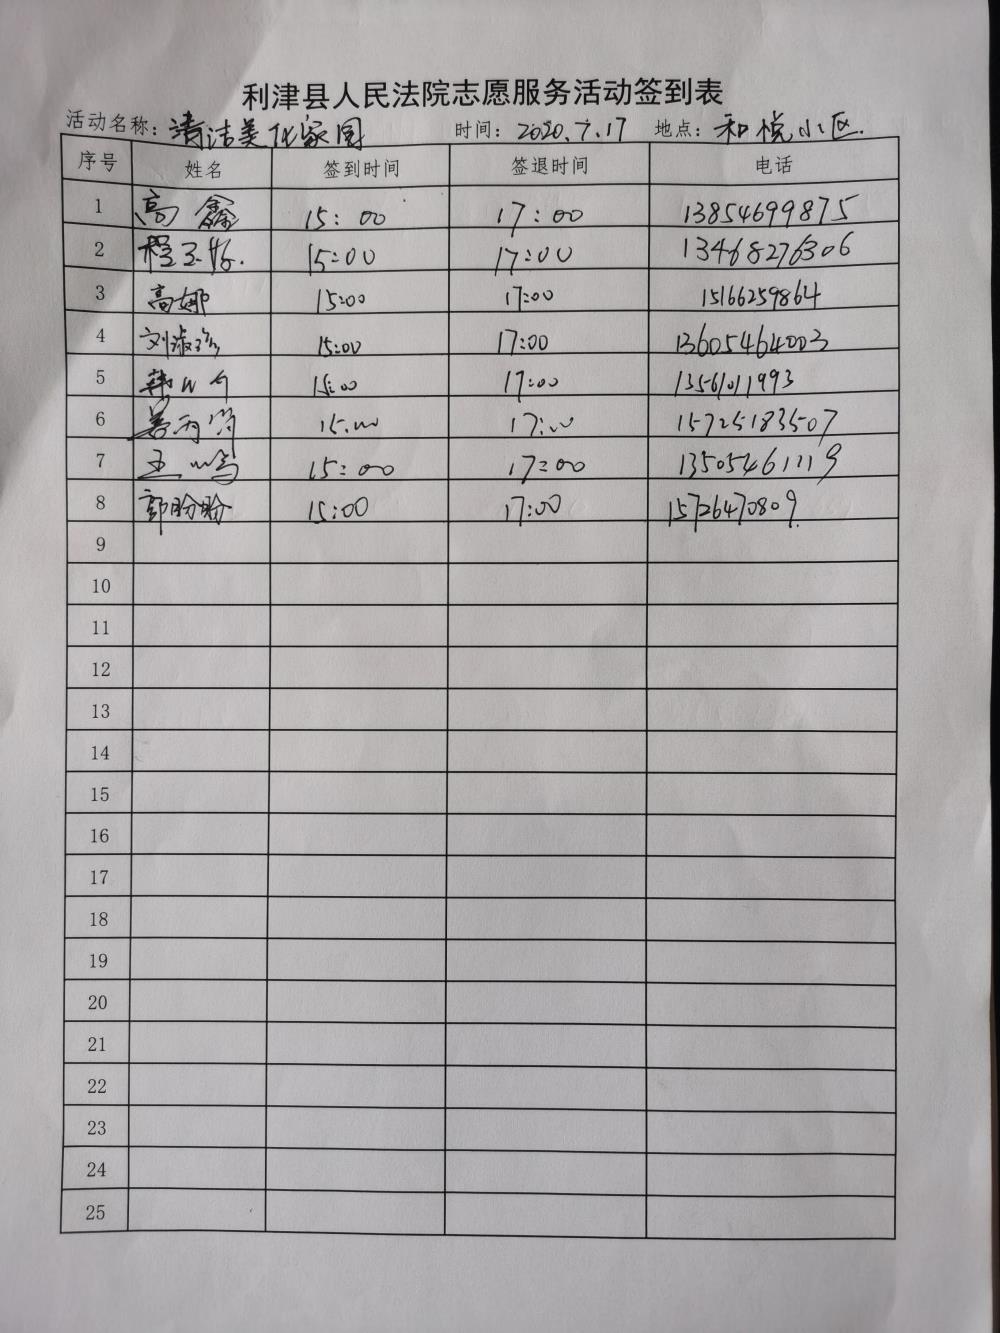 利津县人民法院志愿服务活动签到表
活动名称：清洁美化家园 时间：2020.7.17 地点：和悦小区.
序号 姓名 签到时间 签退时间 电话
1 高鑫 15:00 17:00 13854699875
2 程玉好. 15:00 17:00 13468276306
3 高娜 15:00 17:00 15166259864
4 刘淑珍 15:00 17:00 13605464003
5 15:00 17:00 13561011993
6 15:00 17:00 15725183507
7 15:00 17:00 13505461119
8 郭盼盼 15:00 17:00 15726470809.
9
10
11
12
13
14
15
16
17
18
19
20
21
22
23
24
25